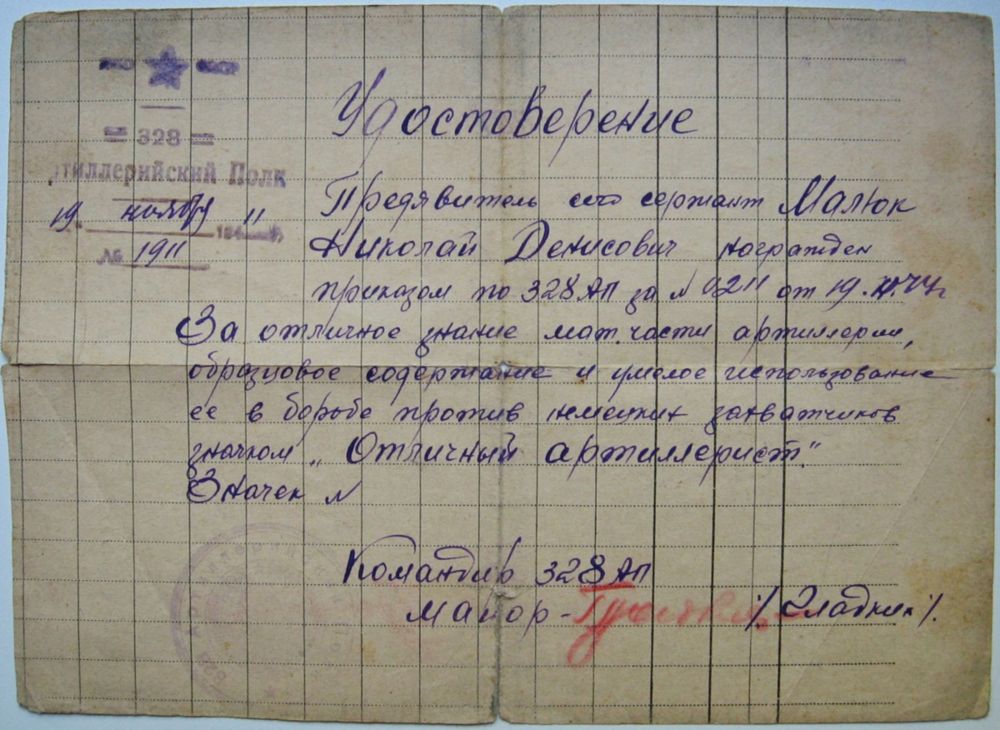 = 328 =
тиллерийский Полк
19. ноября
№ 1911
Удостоверение
Предявитель сего сержант Малюк
Николай Денисович награжден
приказом по 328 АП за № 0211 от 19.XI.44г
За отличное знание мат.части артиллерии,
образцовое содержание и умелое использование
ее в борьбе против немецких захватчиков
значком „Отличный артиллерист."
Значек №
Командир 328 АП
Майор -
/. Гладких /.